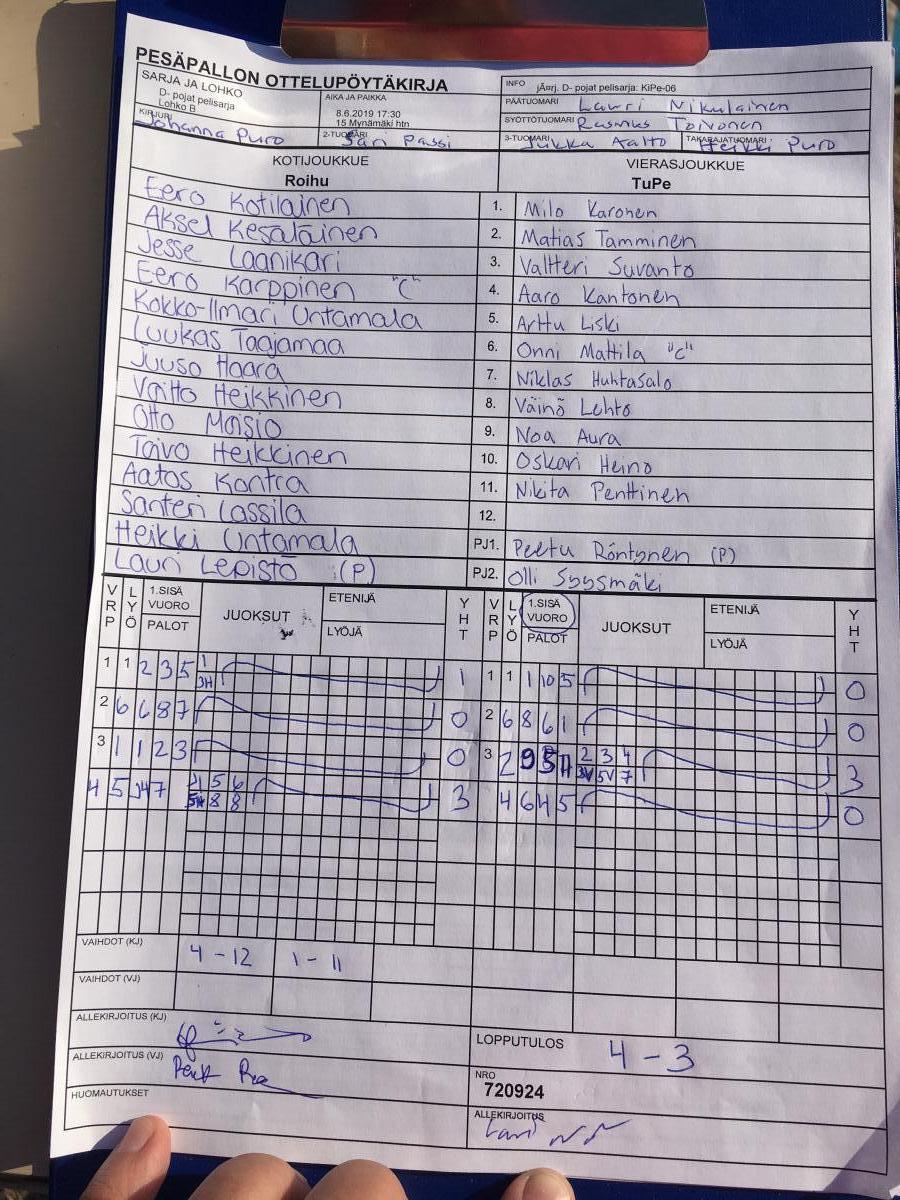 PESÄPALLON OTTELUPÖYTÄKIRJA
SARJA JA LOHKO
D- pojat pelisarja
Lohko B
AIKA JA PAIKKA
8.6.2019 17:30
15 Mynämäki htn
INFO jÄnrj. D- pojat pelisarja: KiPe-06
PÄÄTUOMARI Lauri Nikulainen
SYÖTTÖTUOMARI Rasmus Toivonen
KIRJURI Johanna Puro
2-TUOMARI Sari Passi
3-TUOMARI Jukka Aalto
TAKARAJATUOMARI Heikki Puro
KOTIJOUKKUE
Roihu
VIERASJOUKKUE
TuPe
Eero Kotilainen 1. Milo Karonen
Aksel Kesäläinen 2. Matias Tamminen
Jesse Laanikari 3. Valtteri Suvanto
Eero Karppinen "C" 4. Aaro Kantonen
Kokko-Ilmari Untamala 5. Arttu Liski
Luukas Taajamaa 6. Onni Mattila "C"
Juuso Haara 7. Niklas Huhtasalo
Voitto Heikkinen 8. Väinö Lehto
Otto Maisio 9. Noa Aura
Toivo Heikkinen 10. Oskari Heino
Aatos Kontra 11. Nikita Penttinen
Santeri Lassila 12.
Heikki Untamala PJ1. Peetu Röntynen (P)
Lauri Lepistö (P) PJ2. Olli Syysmäki
VRP LYÖ 1.SISÄ VUORO PALOT JUOKSUT ETENIJÄ LYÖJÄ YHT VRP LYÖ 1.SISÄ VUORO PALOT JUOKSUT ETENIJÄ LYÖJÄ YHT
1 1 2 3 5 1 1 1 1 1 10 5 0
3H
2 6 6 8 7 0 2 6 8 6 1 0
3 1 1 2 3 0 3 2 9 5 11 2 3 4 3
3V 5V 7
4 5 7 5 6 3 4 6 4 5 0
8 8
VAIHDOT (KJ) 4 - 12 1 - 11
VAIHDOT (VJ)
ALLEKIRJOITUS (KJ)
LOPPUTULOS 4 - 3
ALLEKIRJOITUS (VJ)
NRO
720924
HUOMAUTUKSET
ALLEKIRJOITUS